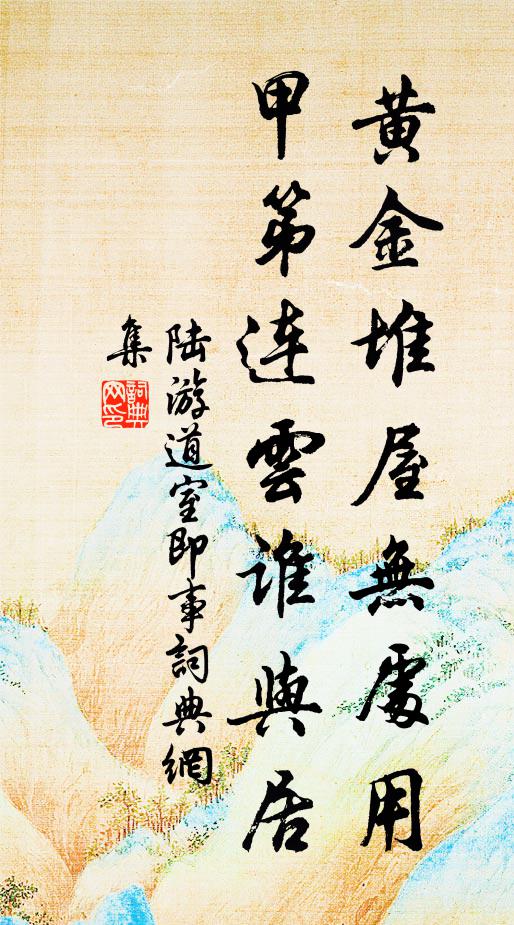 黄金堆屋無處用
甲第連雲誰與居
陆游道室即事詞典網
集
詞典
网印